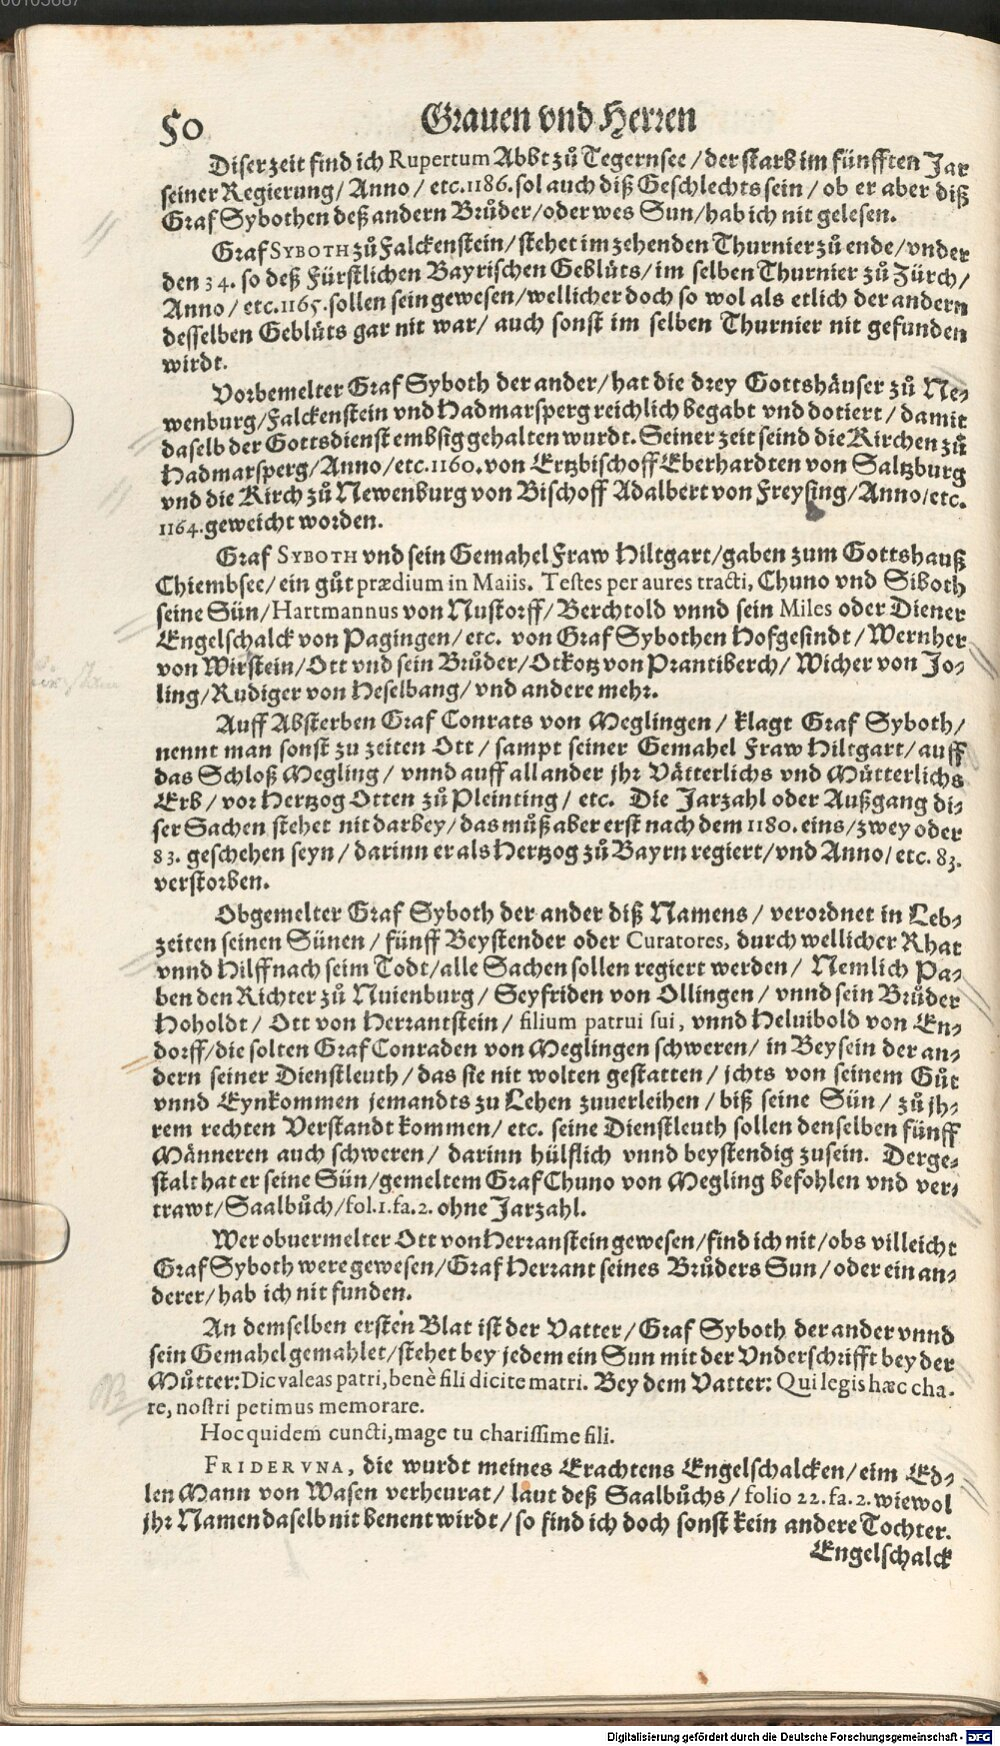 50
Grauen vnd Herren
Diser zeit find ich Rupertum Abbt zů Tegernsee / der starb im fünfften Jar
seiner Regierung / Anno / etc. 1186. sol auch diß Geschlechts sein / ob er aber diß
Graf Sybothen deß andern Brůder / oder wes Sun / hab ich nit gelesen.
Graf SYBOTH zů Falckenstein / stehet im zehenden Thurnier zů ende / vnder
den 34. so deß Fürstlichen Bayrischen Geblüts / im selben Thurnier zů Zürch /
Anno / etc. 1165. sollen sein gewesen / wellicher doch so wol als etlich der andern
desselben Geblüts gar nit war / auch sonst im selben Thurnier nit gefunden
wirdt.
Vorbemelter Graf Syboth der ander / hat die drey Gottshäuser zů Ne-
wenburg / Falckenstein vnd Hadmarsperg reichlich begabt vnd dotiert / damit
daselb der Gottsdienst embsig gehalten wurdt. Seiner zeit seind die Kirchen zů
Hadmarsperg / Anno / etc. 1160. von Ertzbischoff Eberhardten von Saltzburg
vnd die Kirch zů Newenburg von Bischoff Adalbert von Freysing / Anno / etc.
1164. geweicht worden.
Graf SYBOTH vnd sein Gemahel Fraw Hiltgart / gaben zum Gottshauß
Chiembsee / ein gůt prædium in Maiis. Testes per aures tracti, Chuno vnd Siboth
seine Sün / Hartmannus von Nustorff / Berchtold vnnd sein Miles oder Diener
Engelschalck von Pagingen / etc. von Graf Sybothen Hofgesindt / Wernher
von Wirstein / Ott vnd sein Brůder / Otkotz von Prantiberch / Wicher von Jo-
ling / Rudiger von Heselbang / vnd andere mehr.
Auff Absterben Graf Conrats von Meglingen / klagt Graf Syboth /
nennt man sonst zu zeiten Ott / sampt seiner Gemahel Fraw Hiltgart / auff
das Schloß Megling / vnnd auff all ander jhr Vätterlichs vnd Mütterlichs
Erb / vor Hertzog Otten zů Pleinting / etc. Die Jarzahl oder Außgang di-
ser Sachen stehet nit darbey / das můß aber erst nach dem 1180. eins / zwey oder
83. geschehen seyn / darinn er als Hertzog zů Bayrn regiert / vnd Anno / etc. 83.
verstorben.
Obgemelter Graf Syboth der ander diß Namens / verordnet in Leb-
zeiten seinen Sünen / fünff Beystender oder Curatores, durch wellicher Rhat
vnnd Hilff nach seim Todt / alle Sachen sollen regiert werden / Nemlich Pa-
ben den Richter zů Nuienburg / Seyfriden von Ollingen / vnnd sein Brůder
Hoholdt / Ott von Herrantstein / filium patrui sui, vnnd Heluibold von En-
dorff / die solten Graf Conraden von Meglingen schweren / in Beysein der an-
dern seiner Dienstleuth / das sie nit wolten gestatten / jchts von seinem Gůt
vnnd Eynkommen jemandts zu Lehen zuuerleihen / biß seine Sün / zů jh-
rem rechten Verstandt kommen / etc. seine Dienstleuth sollen denselben fünff
Männeren auch schweren / darinn hülflich vnnd beystendig zusein. Derge-
stalt hat er seine Sün / gemeltem Graf Chuno von Megling befohlen vnd ver-
trawt / Saalbůch / fol. 1. fa. 2. ohne Jarzahl.
Wer obuermelter Ott von Herranstein gewesen / find ich nit / obs villeicht
Graf Syboth were gewesen / Graf Herrant seines Brůders Sun / oder ein an-
derer / hab ich nit funden.
An demselben ersten Blat ist der Vatter / Graf Syboth der ander vnnd
sein Gemahel gemahlet / stehet bey jedem ein Sun mit der Vnderschrifft bey der
Můtter: Dic valeas patri, benè fili dicite matri. Bey dem Vatter: Qui legis hæc cha-
re, nostri petimus memorare.
Hoc quidem cuncti, mage tu charissime fili.
FRIDERVNA, die wurdt meines Erachtens Engelschalcken / eim Ed-
len Mann von Wasen verheurat / laut deß Saalbůchs / folio 22. fa. 2. wiewol
jhr Namen daselb nit benent wirdt / so find ich doch sonst kein andere Tochter.
Engelschalck
Digitalisierung gefördert durch die Deutsche Forschungsgemeinschaft - DFG